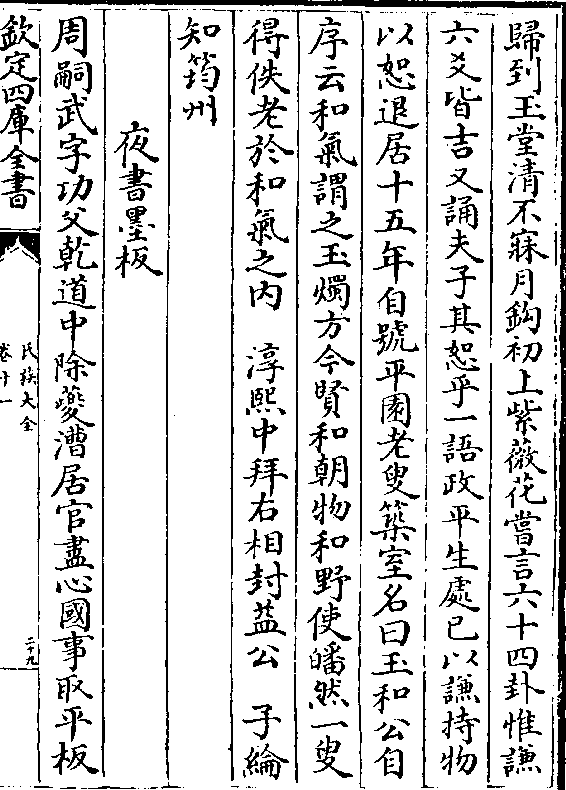 歸到玉堂清不寐月鈎初上紫薇花嘗言六十四卦惟謙
六爻皆吉又誦夫子其恕乎一語政平生處已以謙持物
以恕退居十五年自號平園老叟築室名曰玉和公自
序云和氣謂之玉燭方今賢和朝物和野使皤然一叟
得佚老於和氣之内　淳熙中拜右相封益公　子綸
知筠州
夜書墨板
周嗣武字功父乾道中除夔漕居官盡心國事取平板
欽定四庫全書
氏族大全
卷十一
二十九